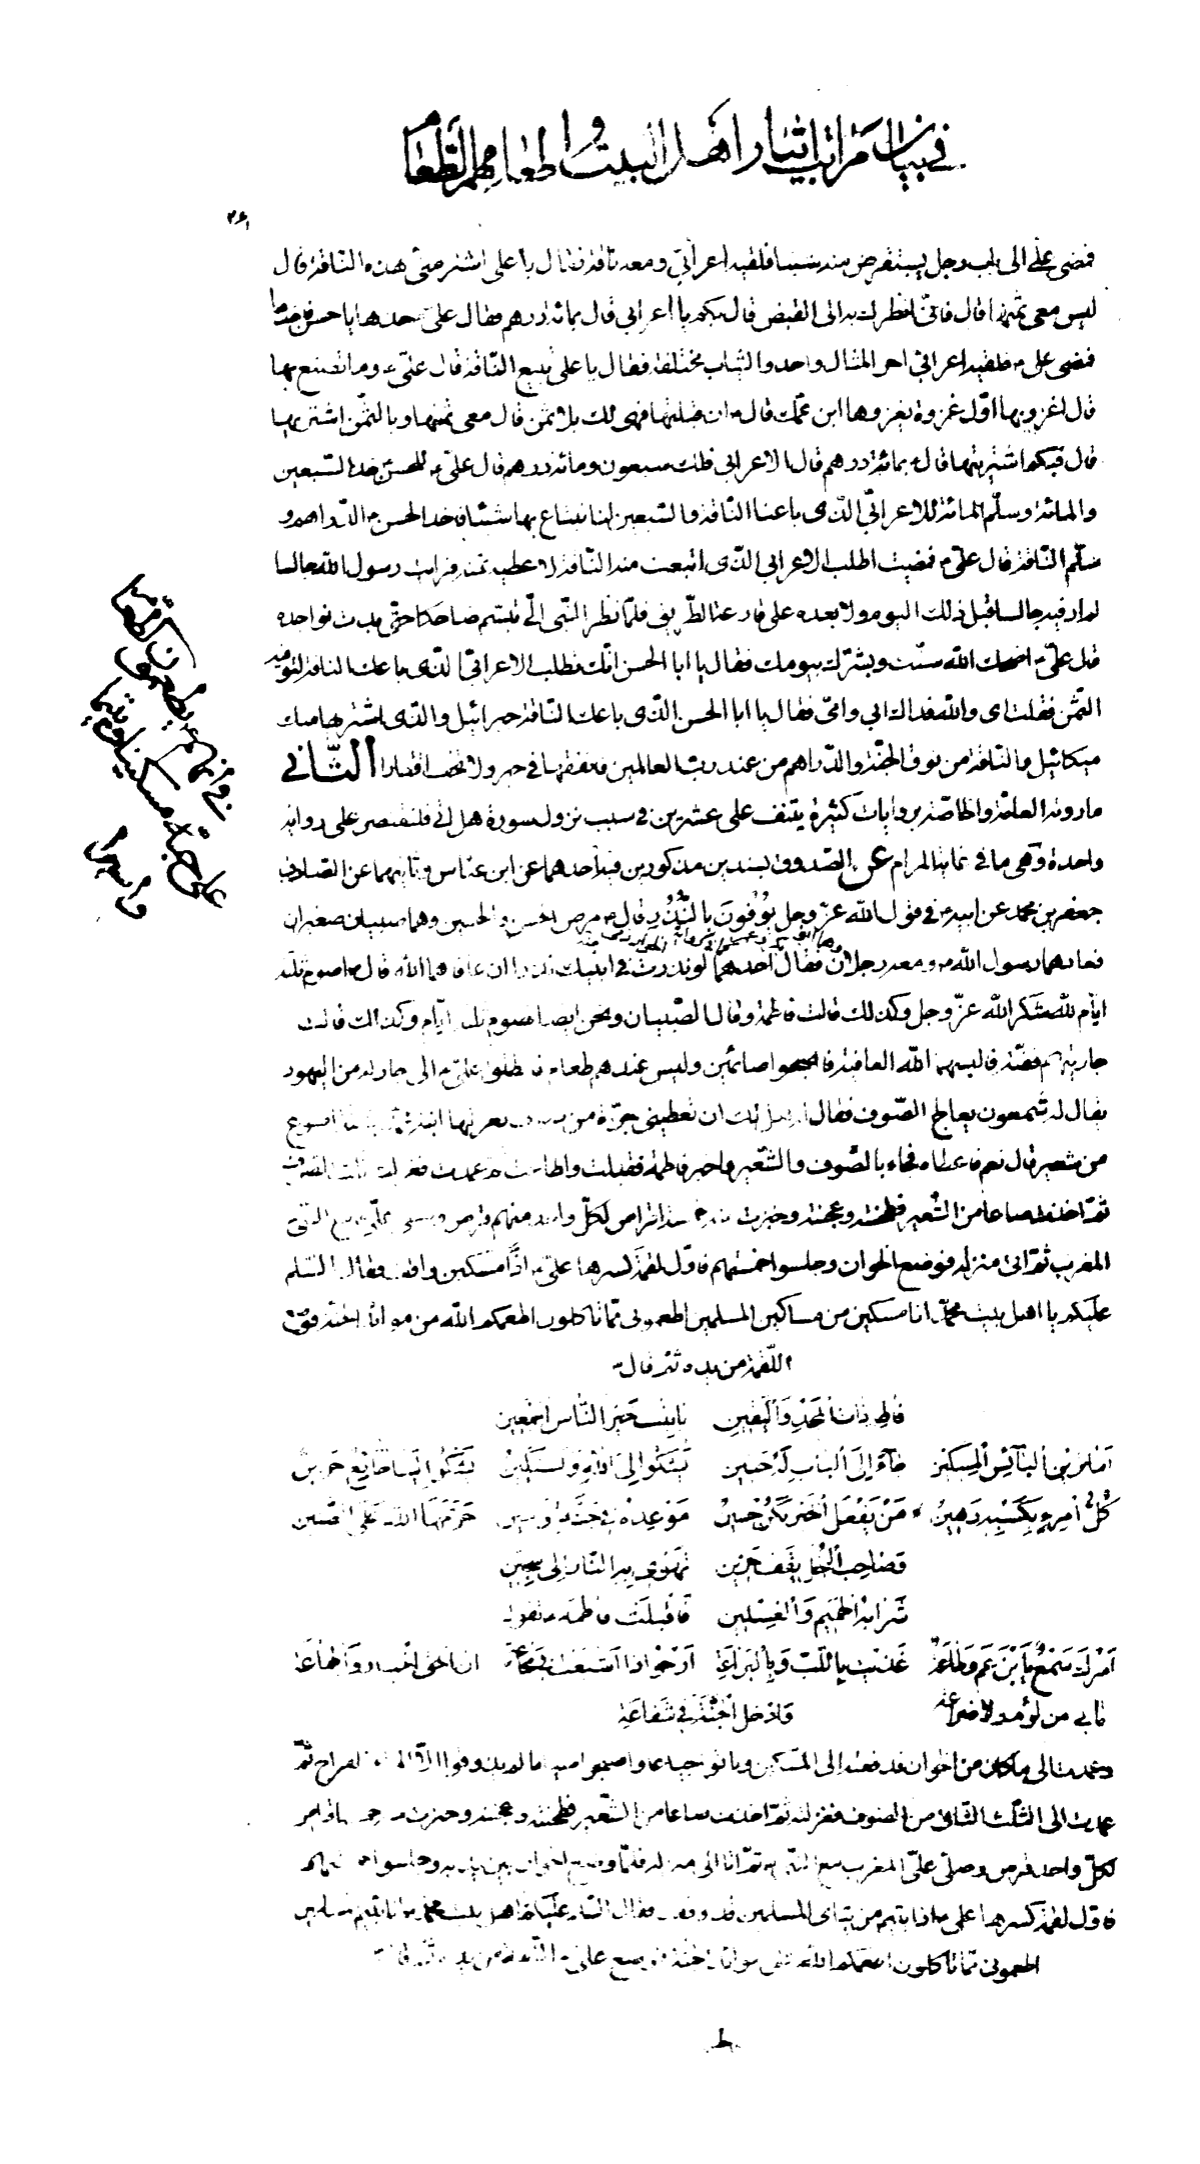 في بيان مراتب ايثار اهل البيت و اطعامهم الطعام
٢٦١
فمضى علي الى باب رجل يستقرض منه شيئا فلقيه اعرابي ومعه ناقة فقال يا علي اشتر منى هذه الناقة قال
ليس معى ثمنها قال فانى انظرك به الى القبض قال بكم يا اعرابي قال بمائة درهم فقال علي خذها يا حسن فخذها
فمضى علي ع فلقيه اعرابي اخر المثال واحد والثياب مختلفة فقال يا علي تبيع الناقة قال علي ع وما تصنع بها
قال اغزو بها اول غزوة يغزوها ابن عمك قال ان قبلتها فهى لك بلا ثمن قال معى ثمنها وبالثمن اشتريها
قال فبكم اشتريتها قال بمائة درهم قال الاعرابي فلك سبعون ومائة درهم قال علي ع للحسن خذ السبعين
والمائة وسلم المائة للاعرابي الذى باعنا الناقة والسبعين لنا نبتاع بها شيئا فاخذ الحسن ع الدراهم و
سلم الناقة قال علي ع فمضيت اطلب الاعرابي الذى ابتعت منه الناقة لاعطيه ثمنه فرايت رسول الله جالسا
لم ار فيه جالسا قبل ذلك اليوم ولا بعده على قارعة الطريق فلما نظر النبى الي تبسم ضاحكا حتى بدت نواجده
قال علي ع اضحك الله سنك وبشرك بيومك فقال يا ابا الحسن انك تطلب الاعرابي الذى باعك الناقة لتوفيه
الثمن فقلت اى والله فداك ابي وامى فقال يا ابا الحسن الذى باعك الناقة جبرائيل والذى اشتريها منك
ميكائيل والناقة من نوق الجنة والدراهم من عند رب العالمين فانفقها في خير ولا تخف اقتارا الثاني
ما روته العامة والخاصة بروايات كثيرة ينيف على عشرين في سبب نزول سورة هل اتى فلنقتصر على رواية
واحدة وهى ما في غاية المرام عن الصدوق بسندين مذكورين فيه احدهما عن ابن عباس وثانيهما عن الصادق
جعفر بن محمد عن ابيه ع في قول الله عز وجل يُوفُونَ بِالنَّذْرِ قال ع مرض الحسن والحسين وهما صبيان صغيران
فعادهما رسول الله ص ومعه رجلان فقال احدهما لو نذرت في ابنيك نذرا ان عافاهما الله قال ع اصوم ثلثة
ايام لله شكر الله عز وجل وكذلك قالت فاطمة وقال الصبيان ونحن ايضا نصوم ثلثة ايام وكذلك قالت
جاريتهم فضة فالبسهما الله العافية فاصبحوا صائمين وليس عندهم طعام فانطلق علي ع الى جار له من اليهود
يقال له شمعون يعالج الصوف فقال هل لك ان تعطينى جزة من صوف تغزلها ابنة محمد بثلثة اصوع
من شعير قال نعم فاعطاه فجاء بالصوف والشعير واخبر فاطمة فقبلت واطاعت ثم عمدت فغزلت ثلث الصوف
ثم اخذت صاعا من الشعير فطحنته وعجنته وخبزت منه خمسة اقراص لكل واحد منهم قرص وصلى علي مع النبي
المغرب ثم اتى منزله فوضع الخوان وجلسوا خمستهم فاول لقمة كسرها علي ع اذا مسكين واقف فقال السلام
عليكم يا اهل بيت محمد انا مسكين من مساكين المسلمين اطعمونى مما تاكلون اطعمكم الله من موائد الجنة فوضع
اللقمة من يده ثم قال
فاطم ذات المجد واليقين يا بنت خير الناس اجمعين
اما ترين البائس المسكين جاء الى الباب له حنين يشكو الى الله ويستكين يشكو الينا جائع حزين
كل امرء بكسبه رهين من يفعل الخير يكن حسين موعده في جنة حرمها الله على الضنين
وصاحب البخل يقف حزين تهوى به النار الى سجين
شرابه الحميم والغسلين فاقبلت فاطمة تقول
امرك سمع يا ابن عم وطاعة غذيت باللب وبالبراعة ارجو اذا اشبعت مجاعة ان الحق الاخيار والجماعة
ما بي من لؤم ولا ضراعة وادخل الجنة في شفاعة
وعمدت الى ما كان من الخوان فدفعته الى المسكين وباتوا جياعا واصبحوا صياما لم يذوقوا الا الماء القراح ثم
عمدت الى الثلث الثانى من الصوف فغزلته ثم اخذت صاعا من الشعير فطحنته وعجنته وخبزت منه خمسة اقراص
لكل واحد قرص وصلى علي المغرب مع النبي ثم اتى الى منزله فلما وضع الخوان بين يديه وجلسوا خمستهم
فاول لقمة كسرها على ع اذا يتيم من يتامى المسلمين قد وقف فقال السلام عليكم اهل بيت محمد انا يتيم المسلمين
اطعمونى مما تاكلون اطعمكم الله على موائد الجنة فوضع علي ع اللقمة من يده ثم قال
ويطعمون الطعام
على حبه مسكينا ويتيما
واسيرا